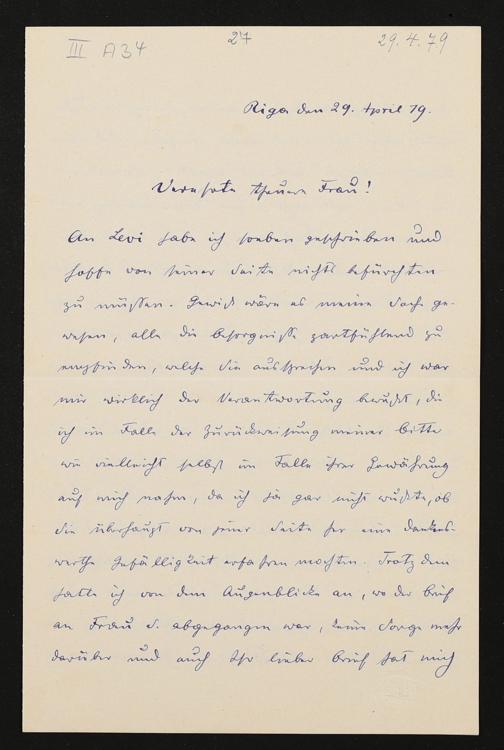 III A 34
27
29. 4. 79
Riga den 29. April 79.
Verehrte theuere Frau!
An Levi habe ich soeben geschrieben und
hoffe von seiner Seite nichts befürchten
zu müssen. Gewiß wäre es meine Sache ge-
wesen, alle die Besorgnisse zartfühlend zu
empfinden, welche Sie aussprechen und ich war
mir wirklich der Verantwortung bewußt, die
ich im Falle der Zurückweisung meiner Bitte
wie vielleicht selbst im Falle ihrer Gewährung
auf mich nahm, da ich ja gar nicht wußte, ob
Sie überhaupt von jener Seite her eine dankens-
werthe Gefälligkeit erfahren mochten. Trotzdem
hatte ich von dem Augenblicke an, wo der Brief
an Frau S. abgegangen war, keine Sorge mehr
darüber und auch Ihr lieber Brief hat mich